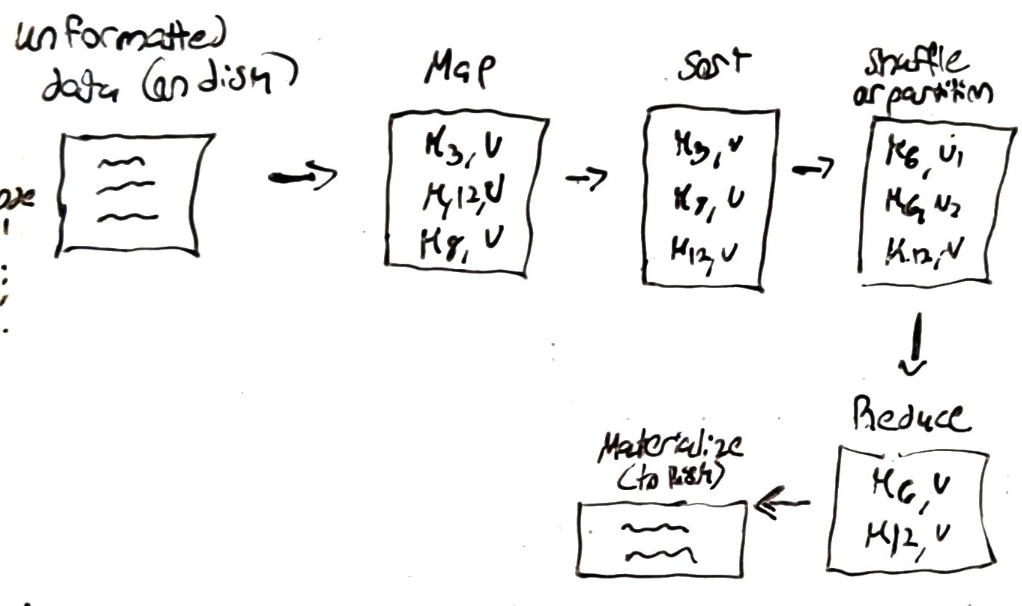 unformatted
data (on disk)
Map
K3, V
K12, V
K8, V
Sort
K3, V
K8, V
K12, V
Shuffle
or partition
K6, V1
K6, V2
K12, V
Reduce
K6, V
K12, V
Materialize
(to disk)